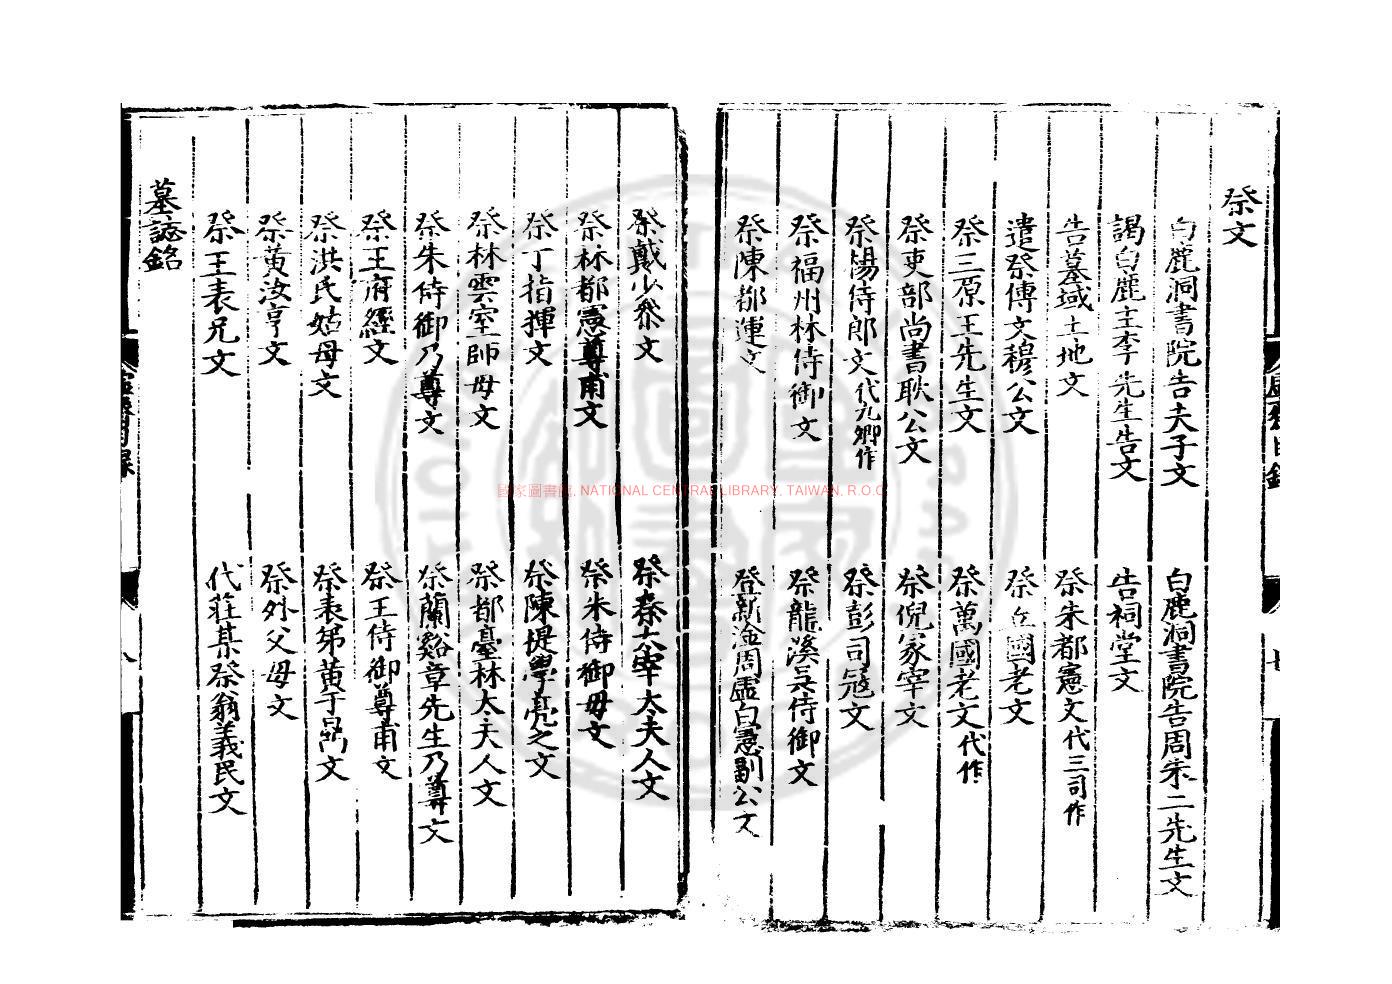 祭文
白鹿洞書院告夫子文 白鹿洞書院告周朱二先生文
謁白鹿主李先生告文 告祠堂文
告墓域土地文 祭朱都憲文代三司作
遣祭傅文穆公文 祭丘國老文
祭三原王先生文 祭萬國老文代作
祭吏部尚書耿公文 祭倪冢宰文
祭楊侍郎文代九卿作 祭彭司寇文
祭福州林侍御文 祭龍溪吳侍御文
祭陳都運文 祭新淦周虛白憲副公文
祭戴少參文 祭秦太宰太夫人文
祭林都憲尊甫文 祭朱侍御母文
祭丁指揮文 祭陳提學亮之文
祭林雲室師母文 祭都臺林太夫人文
祭朱侍御乃尊文 祭蘭谿章先生乃尊文
祭王府經文 祭王侍御尊甫文
祭洪氏姑母文 祭表弟黃于鼎文
祭黃汝亨文 祭外父母文
祭王表兄文 代莊某祭翁義民文
墓誌銘
八
國家圖書館, NATIONAL CENTRAL LIBRARY, TAIWAN, R.O.C